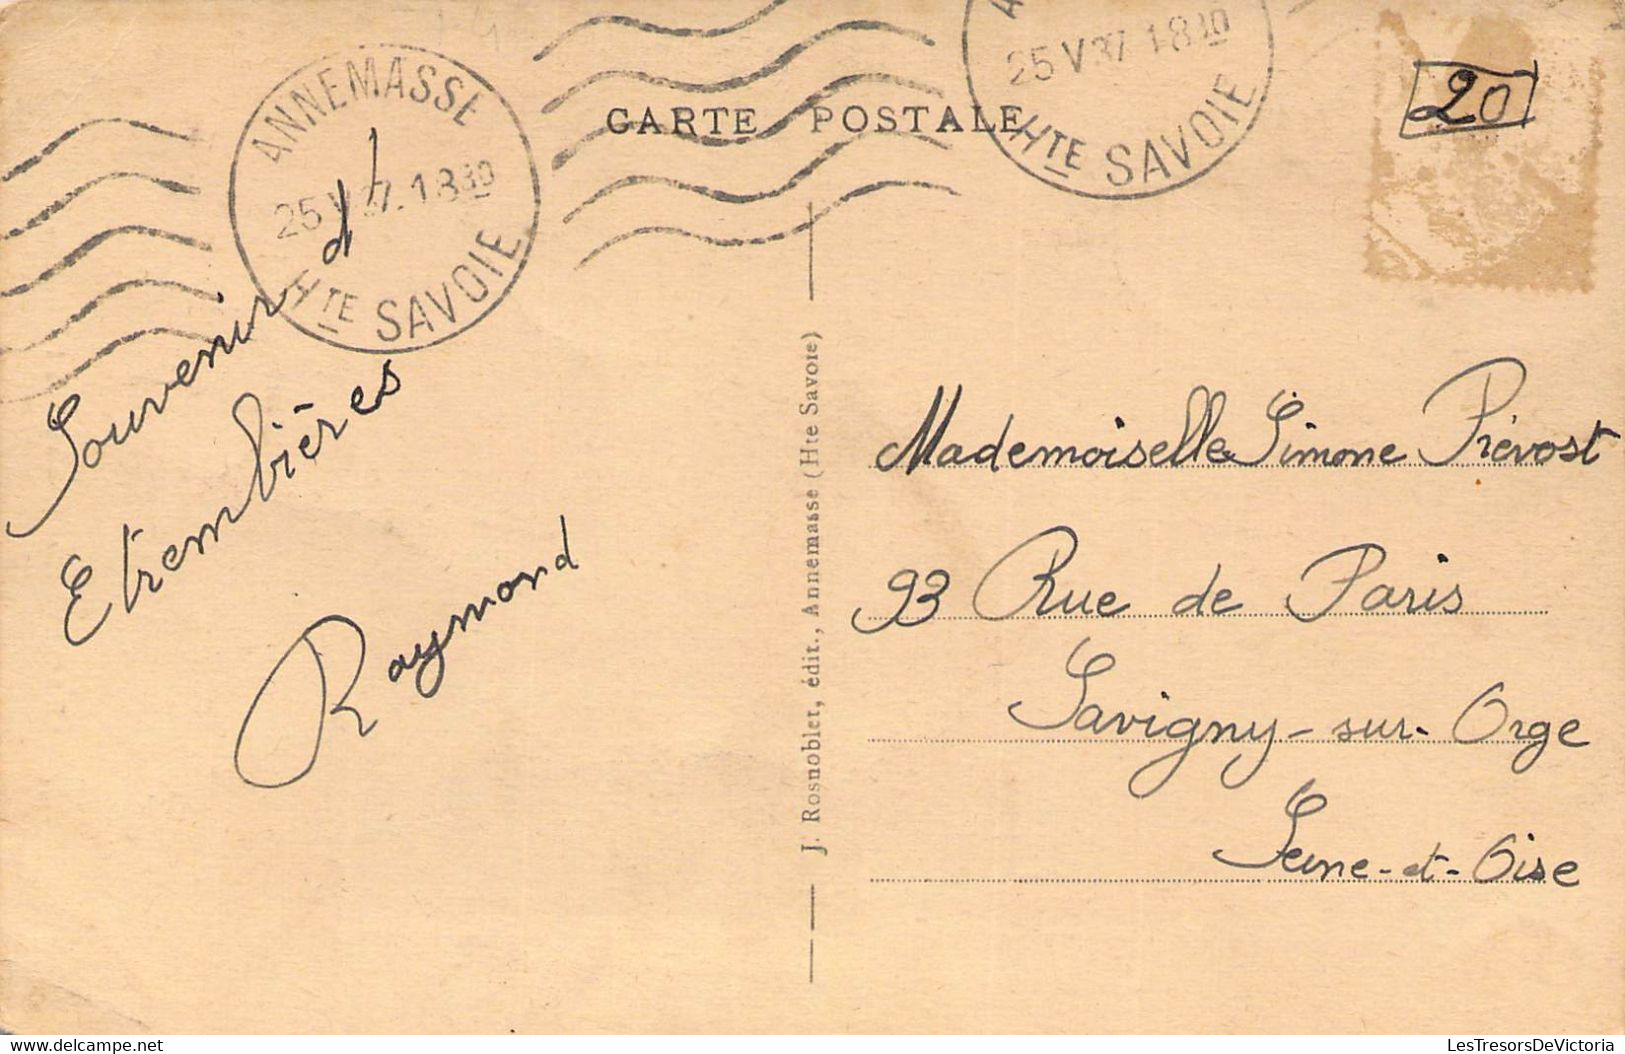 CARTE POSTALE
ANNEMASSE
25 V 37. 18 30
HTE SAVOIE
25 V 37 18 30
HTE SAVOIE
20
Souvenir d'
Etrembières
Raymond
J. Rosnoblet, édit., Annemasse (Hte Savoie)
Mademoiselle Simone Prévost
93 Rue de Paris
Savigny-sur-Orge
Seine-et-Oise
www.delcampe.net
LesTresorsDeVictoria